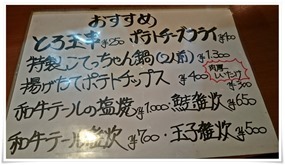 おすすめ
とろ玉丼 ¥250 ポテトチーズフライ ¥400
特製 こてっちゃん鍋(2人前) ¥1.300
揚げたてポテトチップス ¥400 肉厚しいたけ ¥300
和牛テールの塩焼 ¥1000 鮭雑炊 ¥650
和牛テール雑炊 ¥700・玉子雑炊 ¥500